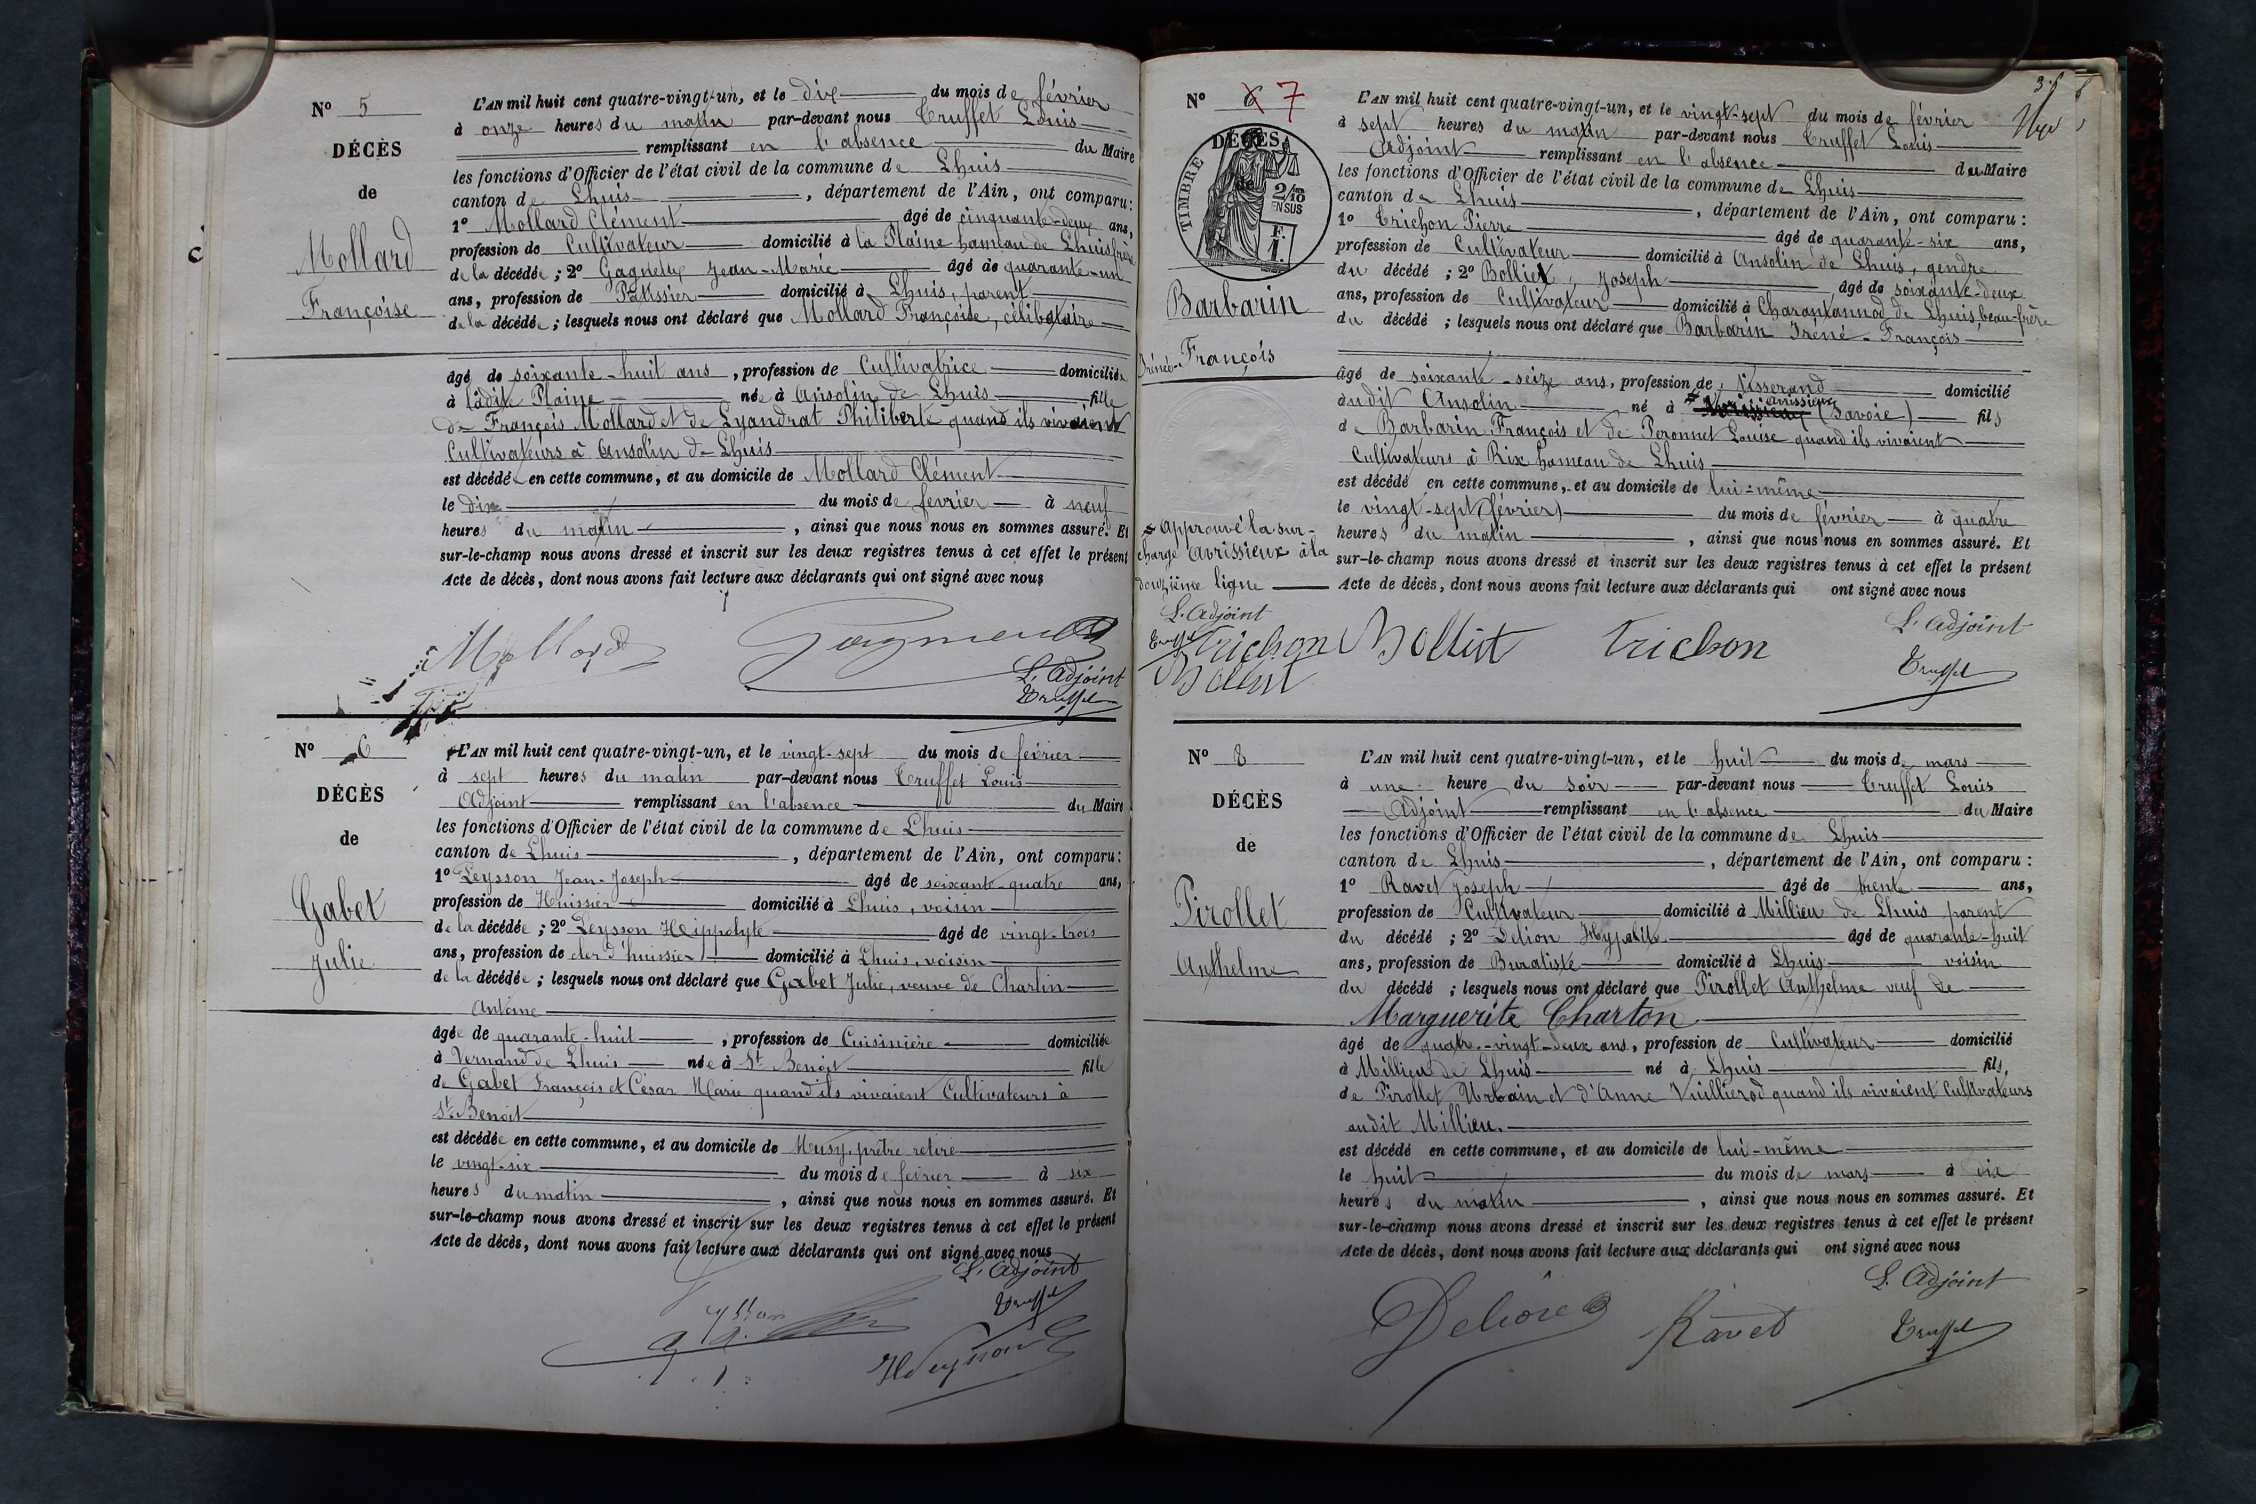 N° 5
DÉCÈS
de
Mollard
Françoise
L'AN mil huit cent quatre-vingt-un, et le dix du mois de février
à onze heures du matin par-devant nous Truffet Louis
remplissant en l'absence du Maire
les fonctions d'Officier de l'état civil de la commune de Lhuis
canton de Lhuis, département de l'Ain, ont comparu:
1° Mollard Clément âgé de cinquante-deux ans,
profession de Cultivateur domicilié à la Plaine hameau de Lhuis frère
de la décédée; 2° Jean-Marie âgé de quarante-un
ans, profession de Patissier domicilié à Lhuis, parent
de la décédée; lesquels nous ont déclaré que Mollard Françoise, célibataire
âgé de soixante-huit ans, profession de Cultivatrice domiciliée
à ladite Plaine née à Ansolin de Lhuis fille
de François Mollard et de Lyandrat Philiberte quand ils vivaient
Cultivateurs à Ansolin de Lhuis
est décédée en cette commune, et au domicile de Mollard Clément
le dix du mois de février à neuf
heures du matin, ainsi que nous nous en sommes assuré. Et
sur-le-champ nous avons dressé et inscrit sur les deux registres tenus à cet effet le présent
Acte de décès, dont nous avons fait lecture aux déclarants qui ont signé avec nous
Mollard
L'Adjoint
Truffet
N° 6
DÉCÈS
de
Gabet
Julie
L'AN mil huit cent quatre-vingt-un, et le vingt-sept du mois de février
à sept heures du matin par-devant nous Truffet Louis
Adjoint remplissant en l'absence du Maire
les fonctions d'Officier de l'état civil de la commune de Lhuis
canton de Lhuis, département de l'Ain, ont comparu:
1° Leysson Jean-Joseph âgé de soixante-quatre ans,
profession de Huissier domicilié à Lhuis, voisin
de la décédée; 2° Leysson Heippolyte âgé de vingt-trois
ans, profession de clerc d'huissier domicilié à Lhuis, voisin
de la décédée; lesquels nous ont déclaré que Gabet Julie, veuve de Charlin
Antoine
âgée de quarante-huit, profession de Cuisinière domiciliée
à Vernand de Lhuis née à St Benoit fille
de Gabet François et César Marie quand ils vivaient Cultivateurs à
St Benoit
est décédée en cette commune, et au domicile de Musy, prêtre retiré
le vingt-six du mois de février à six
heures du matin, ainsi que nous nous en sommes assuré. Et
sur-le-champ nous avons dressé et inscrit sur les deux registres tenus à cet effet le présent
Acte de décès, dont nous avons fait lecture aux déclarants qui ont signé avec nous
L'Adjoint
Truffet
N° 6 7
DÉCÈS
de
TIMBRE
2/10
EN SUS
F.
1.
Barbarin
Iréné-François
L'AN mil huit cent quatre-vingt-un, et le vingt-sept du mois de février
à sept heures du matin par-devant nous Truffet Louis
Adjoint remplissant en l'absence du Maire
les fonctions d'Officier de l'état civil de la commune de Lhuis
canton de Lhuis, département de l'Ain, ont comparu:
1° Trichon Pierre âgé de quarante-six ans,
profession de Cultivateur domicilié à Ansolin de Lhuis, gendre
du décédé; 2° Bolliet, Joseph âgé de soixante-deux
ans, profession de Cultivateur domicilié à Charantannod de Lhuis, beau-frère
du décédé; lesquels nous ont déclaré que Barbarin Iréné-François
âgé de soixante-seize ans, profession de Tisserand domicilié
audit Ansolin né à avrissieux (Savoie) fils
de Barbarin François et de Peronnet Louise quand ils vivaient
Cultivateurs à Rix hameau de Lhuis
est décédé en cette commune, et au domicile de lui-même
le vingt-sept (février) du mois de février à quatre
heures du matin, ainsi que nous nous en sommes assuré. Et
sur-le-champ nous avons dressé et inscrit sur les deux registres tenus à cet effet le présent
Acte de décès, dont nous avons fait lecture aux déclarants qui ont signé avec nous
approuvé la sur-
charge avrissieux à la
douzième ligne
L'Adjoint
Truffet Trichon
Bolliet
Bolliet Trichon
L'Adjoint
Truffet
N° 8
DÉCÈS
de
Pirollet
Anthelme
L'AN mil huit cent quatre-vingt-un, et le huit du mois de mars
à une heure du soir par-devant nous Truffet Louis
Adjoint remplissant en l'absence du Maire
les fonctions d'Officier de l'état civil de la commune de Lhuis
canton de Lhuis, département de l'Ain, ont comparu:
1° Ravet Joseph âgé de trente ans,
profession de Cultivateur domicilié à Millieu de Lhuis parent
du décédé; 2° Delion Hypolite âgé de quarante-huit
ans, profession de Buraliste domicilié à Lhuis voisin
du décédé; lesquels nous ont déclaré que Pirollet Anthelme veuf de
Marguerite Charton
âgé de quatre-vingt-deux ans, profession de Cultivateur domicilié
à Millieu de Lhuis né à Lhuis fils
de Pirollet Urbain et d'Anne Vuillierod quand ils vivaient Cultivateurs
audit Millieu.
est décédé en cette commune, et au domicile de lui-même
le huit du mois de mars à dix
heures du matin, ainsi que nous nous en sommes assuré. Et
sur-le-champ nous avons dressé et inscrit sur les deux registres tenus à cet effet le présent
Acte de décès, dont nous avons fait lecture aux déclarants qui ont signé avec nous
L'Adjoint
Ravet
Truffet